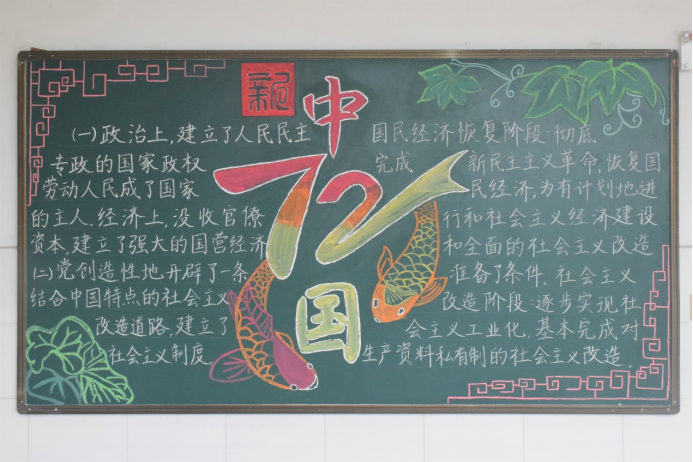 新
中
72
国
(一)政治上,建立了人民民主
专政的国家政权
劳动人民成了国家
的主人.经济上,没收官僚
资本,建立了强大的国营经济
(二)党创造性地开辟了一条
结合中国特点的社会主义
改造道路,建立了
社会主义制度
国民经济恢复阶段:彻底
完成 新民主主义革命,恢复国
民经济,为有计划地进
行和社会主义经济建设
和全面的社会主义改造
准备了条件.社会主义
改造阶段:逐步实现社
会主义工业化,基本完成对
生产资料私有制的社会主义改造.